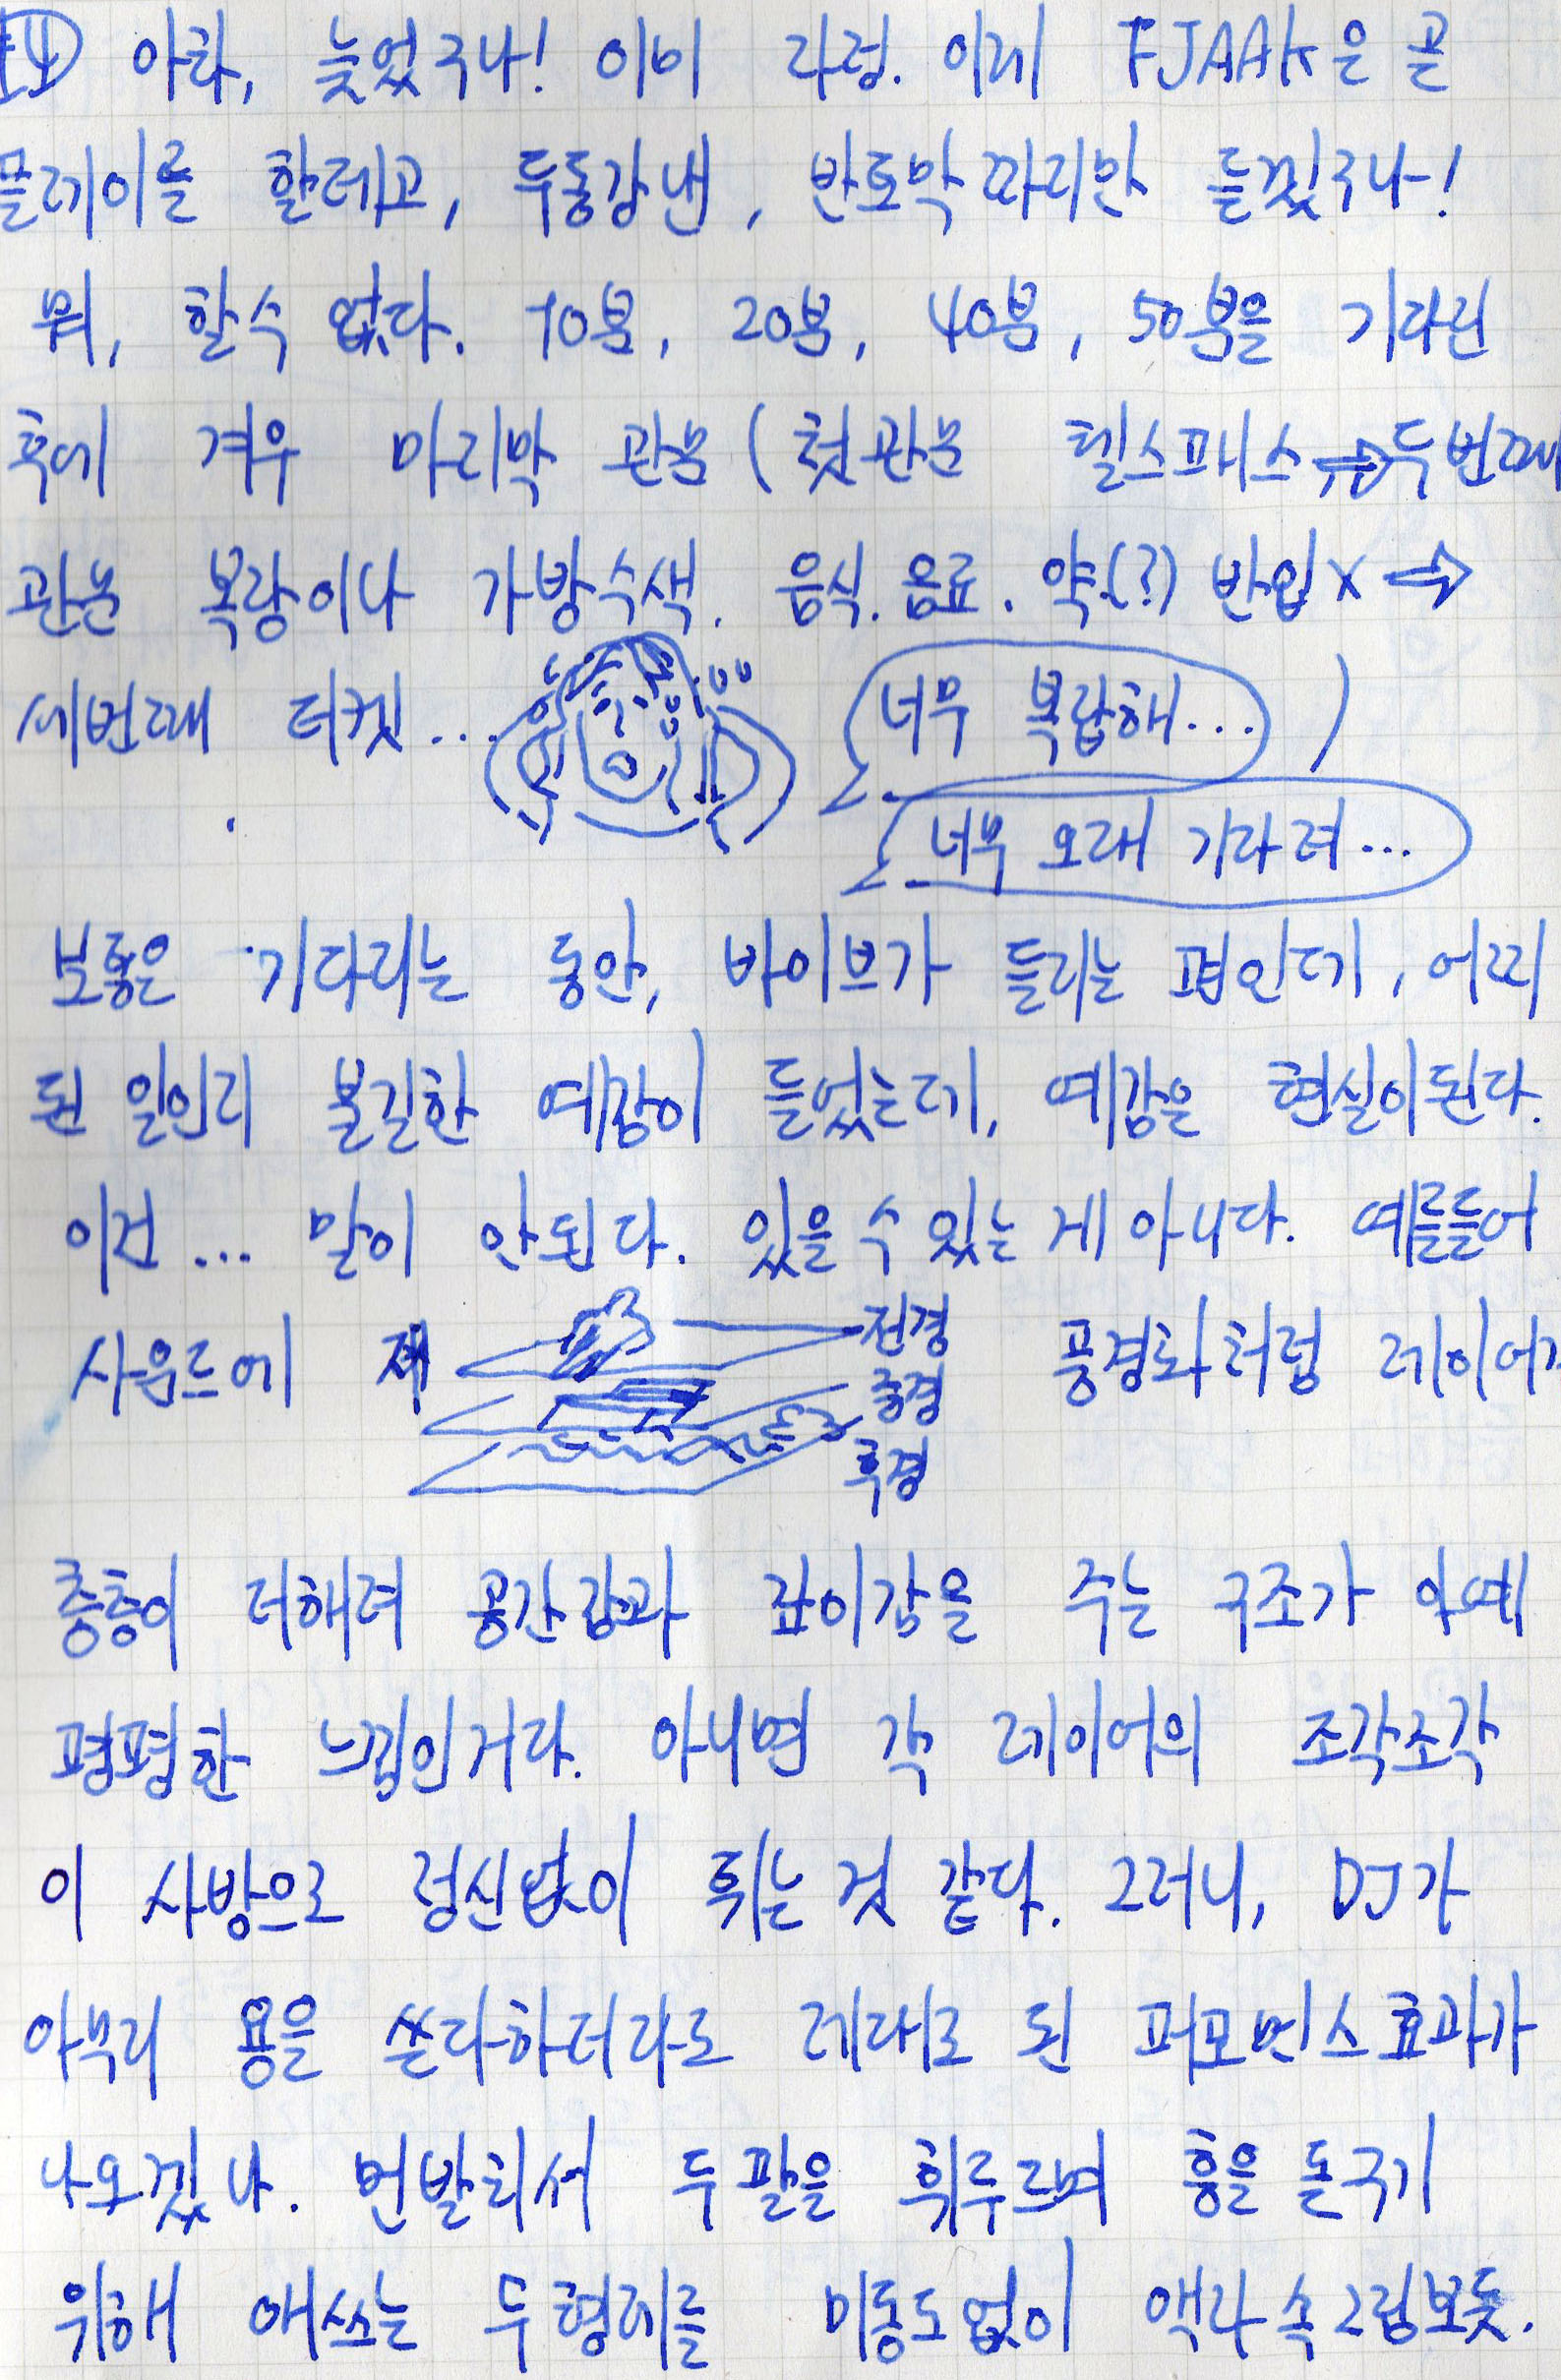 14 아차, 늦었구나! 이미 자정. 이제 FJAAK은 곧
플레이를 할테고, 두동강낸, 반토막짜리만 듣겠구나!
뭐, 할수 없다. 10분, 20분, 40분, 50분을 기다린
후에 겨우 마지막 관문 (첫관문 헬스패스 ⇒ 두번째
관문 복장이나 가방수색. 음식. 음료. 약(?) 반입 X ⇒
세번째 티켓...
너무 복잡해... )
너무 오래 기다려...
보통은 기다리는 동안, 바이브가 들리는 편인데, 어찌
된 일인지 불길한 예감이 들었는데, 예감은 현실이 된다.
이건 ... 말이 안된다. 있을 수 있는 게 아니다. 예를들어
사운드에
전경
중경
후경
풍경화처럼 레이어가
층층이 더해져 공간감과 깊이감을 주는 구조가 아예
평평한 느낌인거다. 아니면 각 레이어의 조각조각
이 사방으로 정신없이 튀는 것 같다. 그러니, DJ가
아무리 용을 쓴다하더라도 제대로 된 퍼포먼스 효과가
나오겠나. 먼발치서 두 팔을 휘두르며 흥을 돋구기
위해 애쓰는 두형제를 미동도 없이 액자 속 그림보듯.